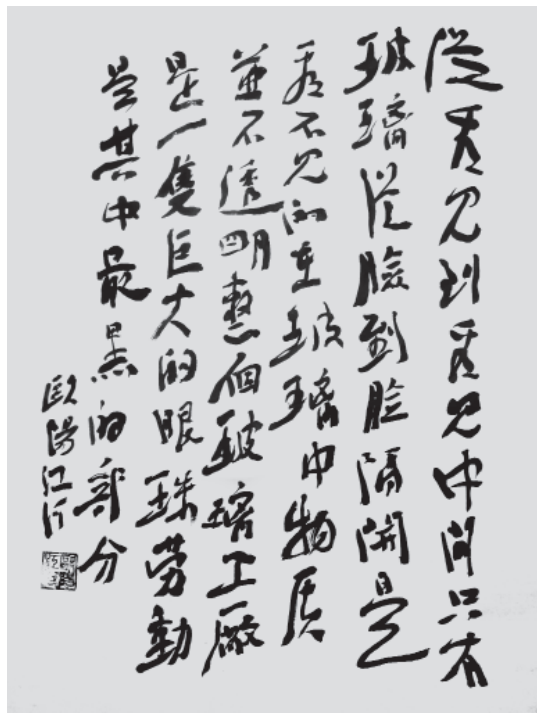 從看见到看见中間只有
玻璃從臉到臉隔開是
看不见的在玻璃中物质
並不透明整個玻璃工廠
是一隻巨大的眼珠勞動
是其中最黑的部分
歐陽江河